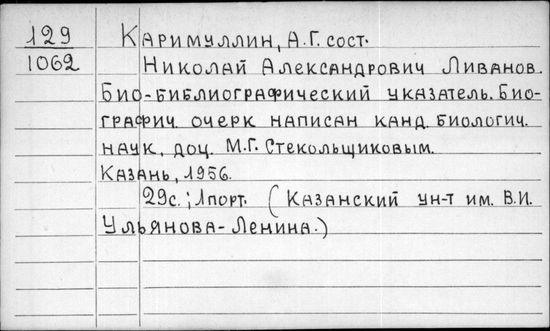 129
1062
Каримуллин, А.Г. сост.
Николай Александрович Ливанов.
Био-библиографический указатель. Био-
графич. очерк написан канд. биологич.
наук, доц. М.Г. Стекольщиковым.
Казань, 1956.
29с.; 1порт. (Казанский ун-т им. В.И.
Ульянова-Ленина.)